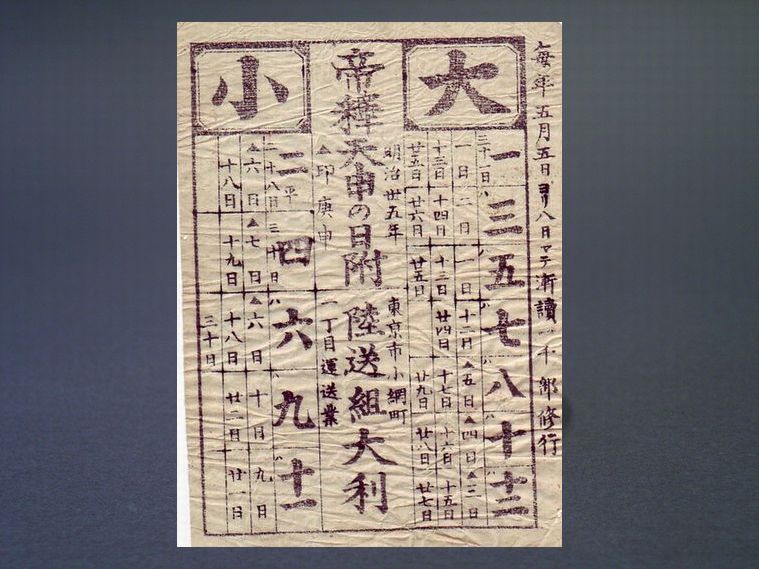 毎年五月五日ヨリ八日マデ漸讀一千部修行
大
一 三 五 七 八 十 十二
三十一日ハ
一日 二日 一日 十二日 ▲五日 ▲四日 ▲三日
十三日 十四日 十三日 廿四日 十七日 十六日 十五日
廿五日 廿六日 廿五日 廿九日 廿八日 廿七日
明治廿五年
東京市小網町
帝釋天申の日附
陸送組大利
▲印庚申
一丁目運送業
小
二平 四 六 九 十一
二十八日 三十日
▲六日 ▲七日 ▲六日 十月 九日
十八日 十九日 十八日 廿二日 廿一日
三十日